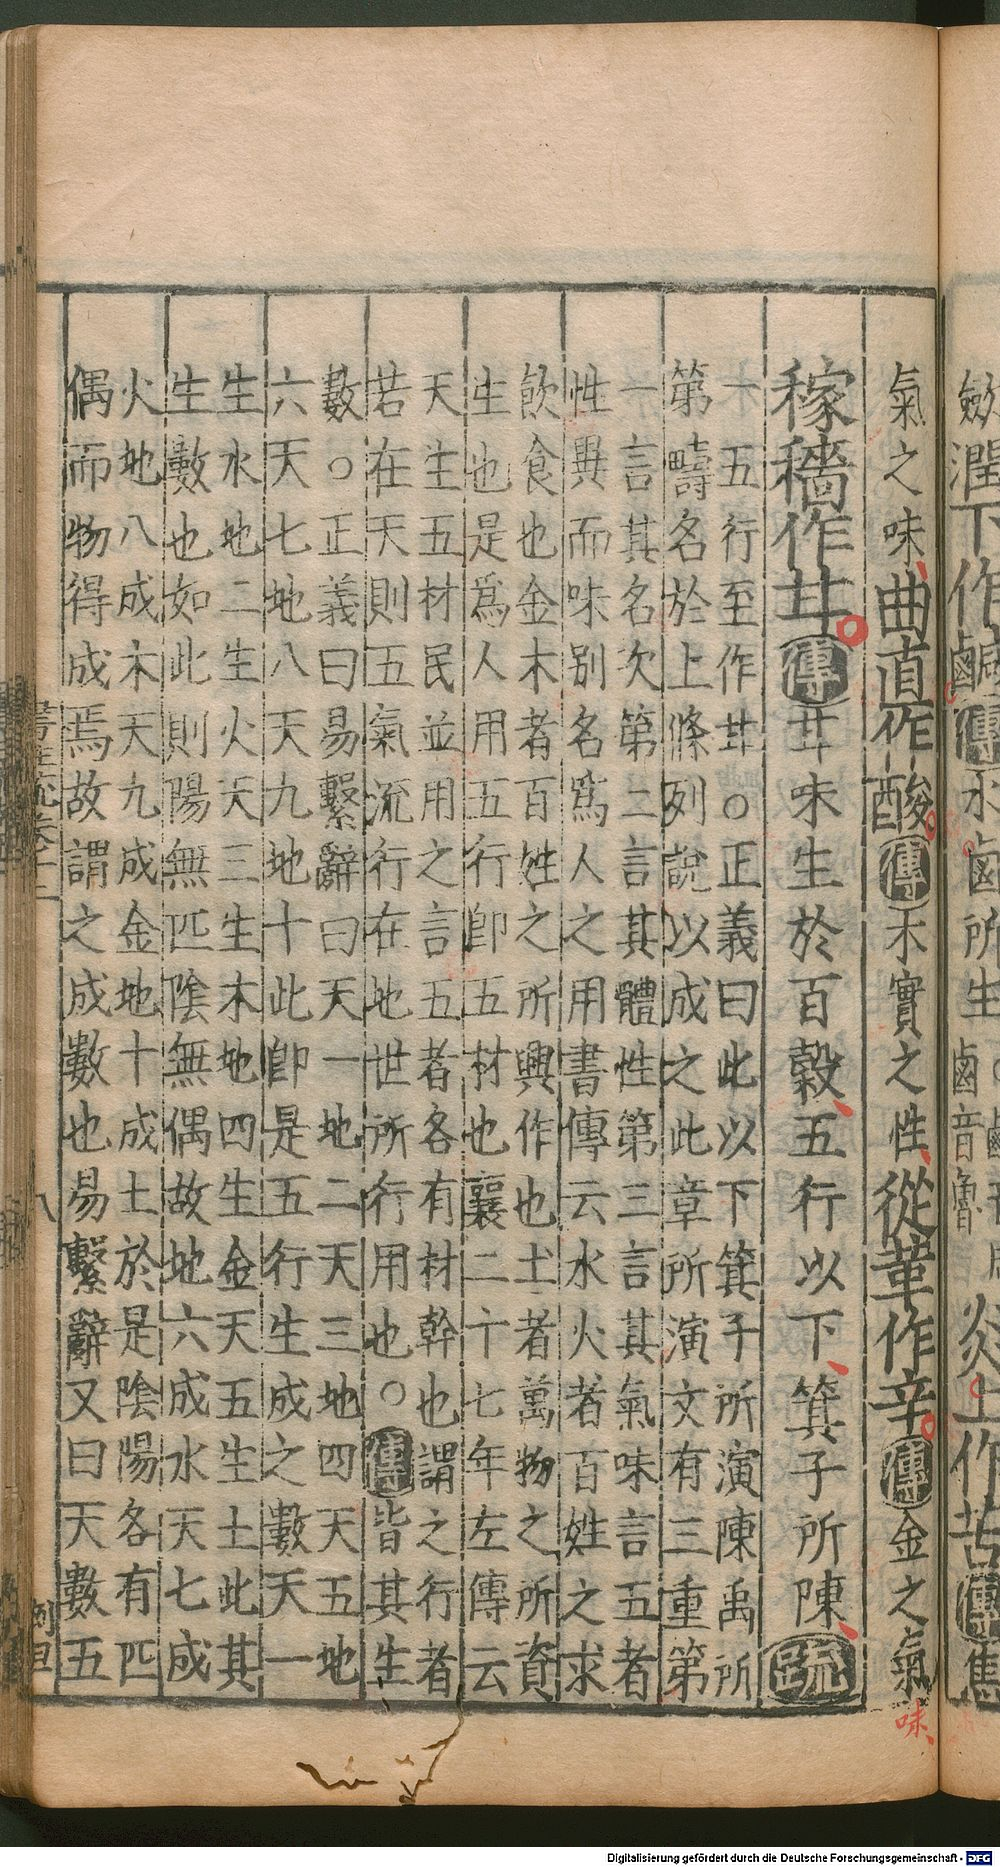 潤下作鹹傳水鹵所生
鹵音魯
炎上作苦傳焦
氣之味曲直作酸傳木實之性從革作辛傳金之氣味
稼穡作甘傳甘味生於百穀五行以下箕子所陳疏
十五行至作甘○正義曰此以下箕子所演陳禹所
第疇名於上條列說以成之此章所演文有三重第
一言其名次第二言其體性第三言其氣味言五者
性異而味別名爲人之用書傳云水火者百姓之求
飲食也金木者百姓之所興作也土者萬物之所資
生也是爲人用五行卽五材也襄二十七年左傳云
天生五材民並用之言五者各有材幹也謂之行者
若在天則五氣流行在地世所行用也○傳皆其生
數○正義曰易繫辭曰天一地二天三地四天五地
六天七地八天九地十此卽是五行生成之數天一
生水地二生火天三生木地四生金天五生土此其
生數也如此則陽無匹陰無偶故地六成水天七成
火地八成木天九成金地十成土於是陰陽各有匹
偶而物得成焉故謂之成數也易繫辭又曰天數五
八
Digitalisierung gefördert durch die Deutsche Forschungsgemeinschaft - DFG